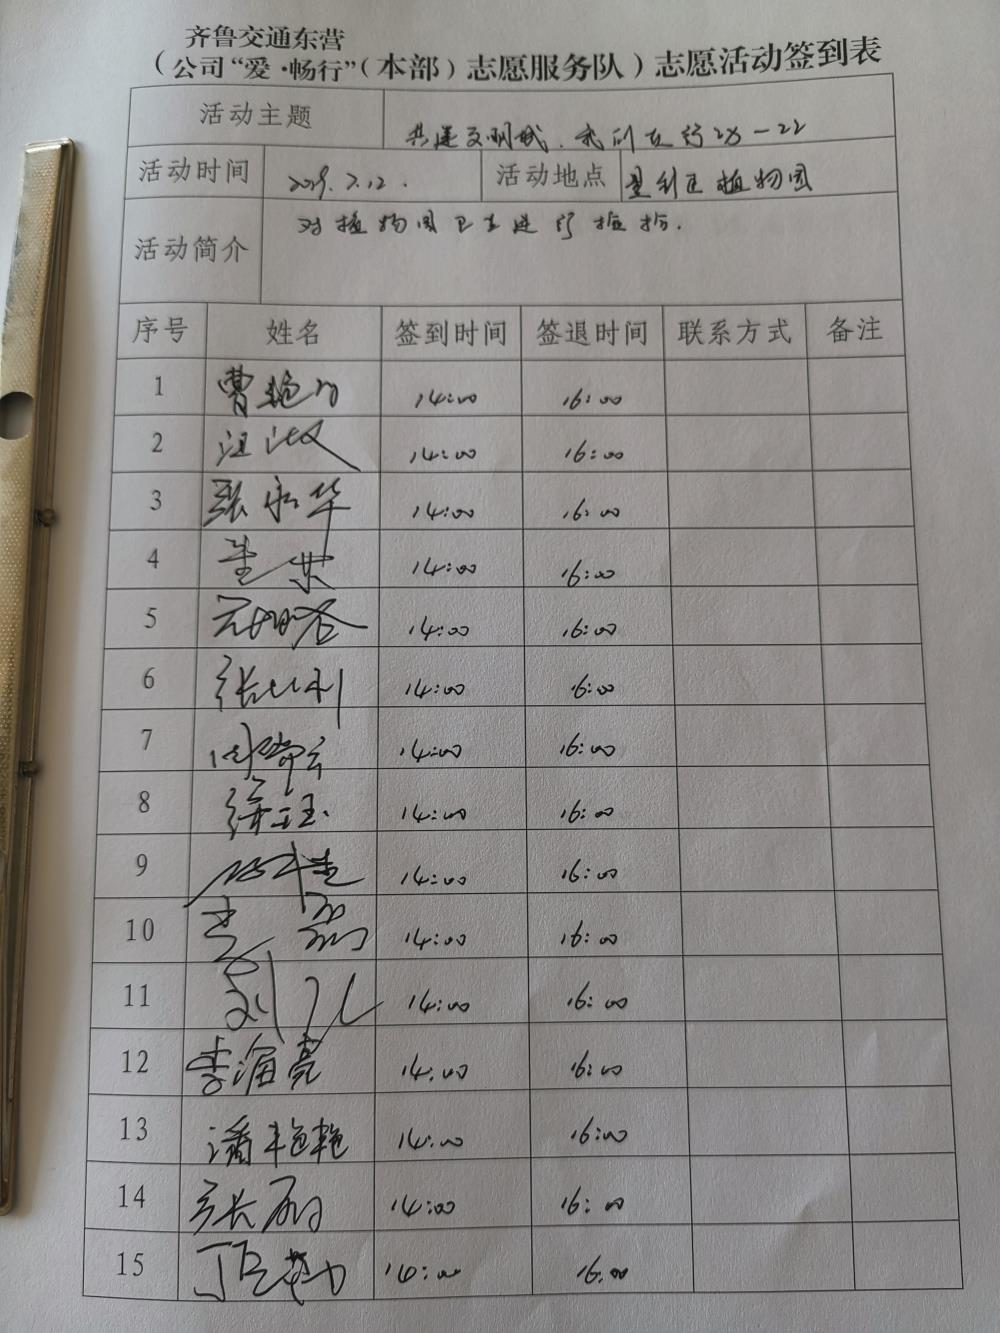 齐鲁交通东营
（公司“爱·畅行”（本部）志愿服务队）志愿活动签到表
活动主题 共建文明城，我们在行动一22
活动时间 2019.7.12. 活动地点 垦利区植物园
活动简介 对植物园卫生进行捡拾.
序号 姓名 签到时间 签退时间 联系方式 备注
1 曹艳 14:00 16:00
2 汪 14:00 16:00
3 张永华 14:00 16:00
4 14:00 16:00
5 14:00 16:00
6 张 利 14:00 16:00
7 14:00 16:00
8 徐玉玉 14:00 16:00
9 14:00 16:00
10 14:00 16:00
11 刘 14:00 16:00
12 李海亮 14:00 16:00
13 潘艳艳 14:00 16:00
14 张 14:00 16:00
15 丁 14:00 16:00